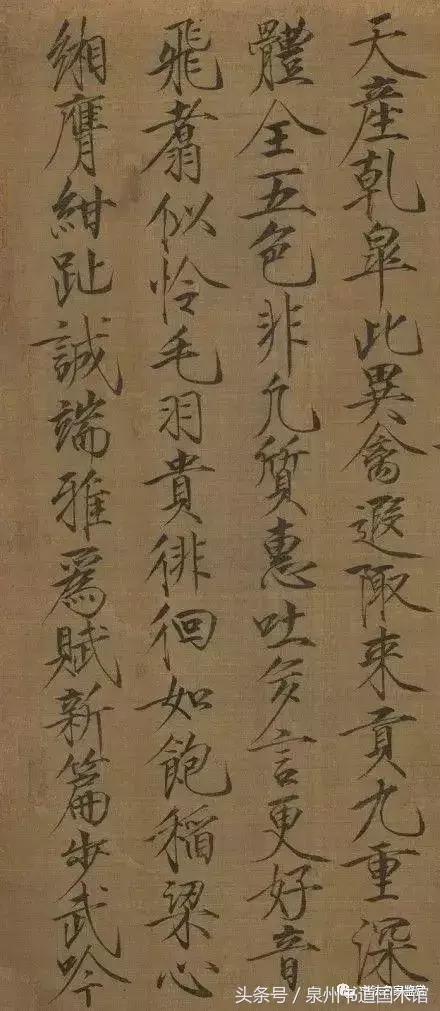 天產乹皋此異禽遐陬來貢九重深
體全五色非凡質惠吐多言更好音
飛翥似怜毛羽貴徘徊如飽稻粱心
緗膺紺趾誠端雅爲賦新篇步武吟
头条号 / 泉州书道国术馆